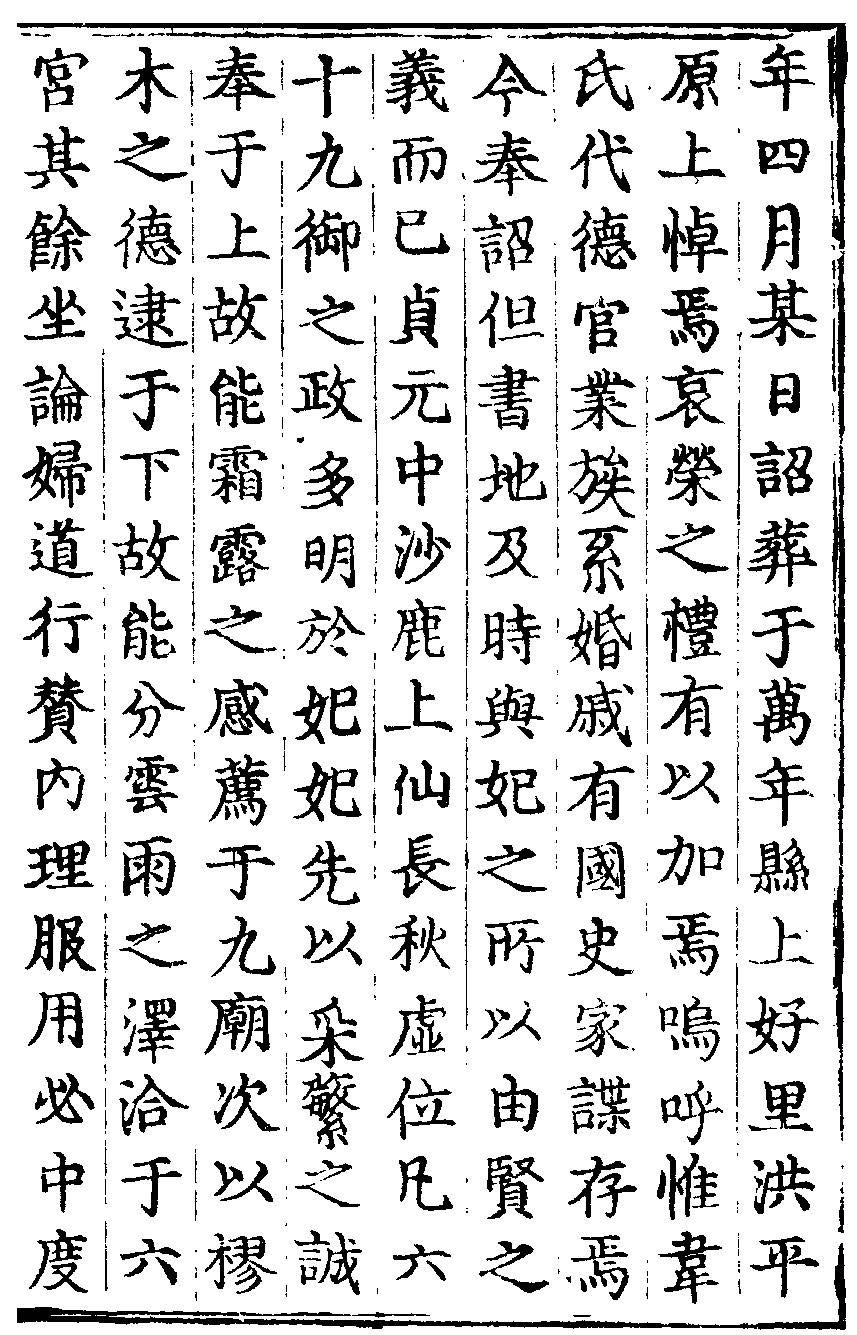 年四月某日詔葬于萬年縣上好里洪平
原上悼焉哀榮之禮有以加焉嗚呼惟韋
氏代德官業族系婚戚有國史家諜存焉
今奉詔但書地及時與妃之所以由賢之
義而已貞元中沙鹿上仙長秋虛位凡六
十九御之政多明於妃妃先以采繁之誠
奉于上故能霜露之感薦于九廟次以樛
木之德逮于下故能分雲雨之澤洽于六
宮其餘坐論婦道行賛內理服用必中度